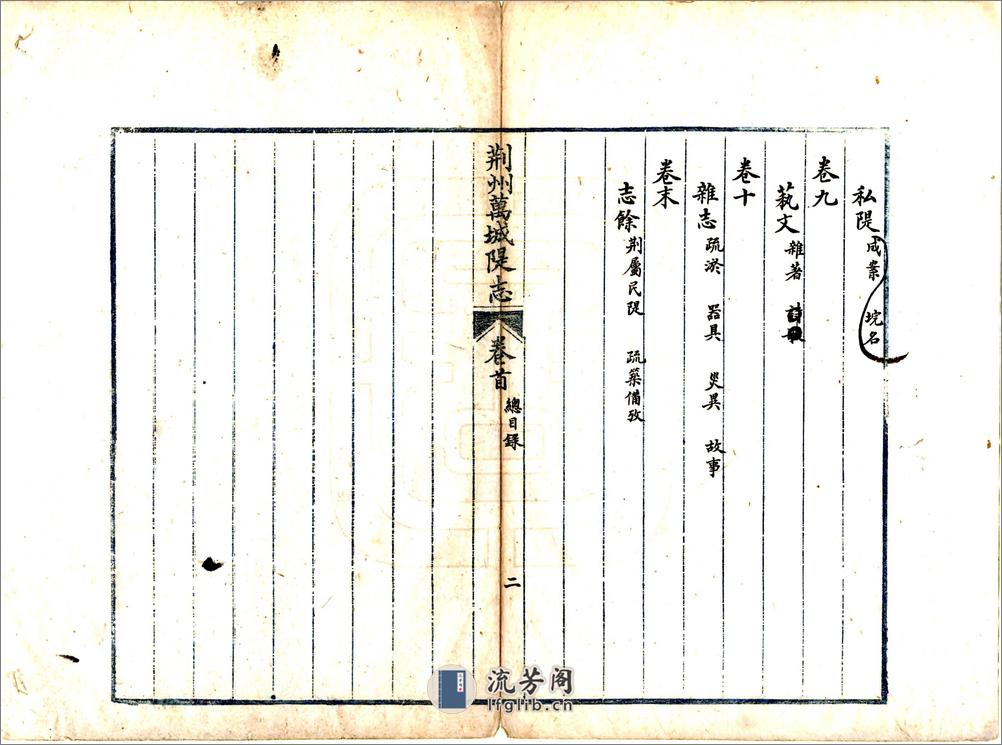 私隄 成案 垸名
卷九
藝文 雜著
卷十
雜志 疏淤 器具 災異 故事
卷末
志餘 荆屬民隄 疏築備攷
荆州萬城隄志 卷首 總目錄 二
流芳阁
lfglib.cn